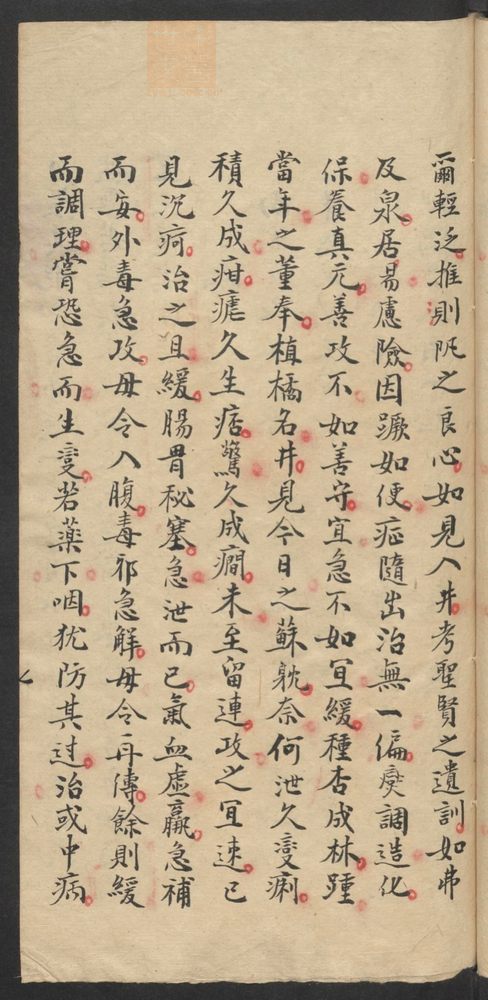 爾輕泛推則阬之良心如見入井考聖賢之遺訓如弗
及泉居易慮險因蹶如便症隨出治無一偏爕調造化
保養真元善攻不如善守宜急不如宜緩種杏成林踵
當年之董奉植橘名井見今日之蘇躭奈何泄久變痢
積久成疳瘧久生痞驚久成癎未至留連攻之宜速已
見沉疴治之且緩腸胃秘塞急泄而已氣血虛羸急補
而安外毒急攻毋令入腹毒邪急觧毋令再傳餘則緩
而調理嘗恐急而生變若藥下咽犹防其过治或中病